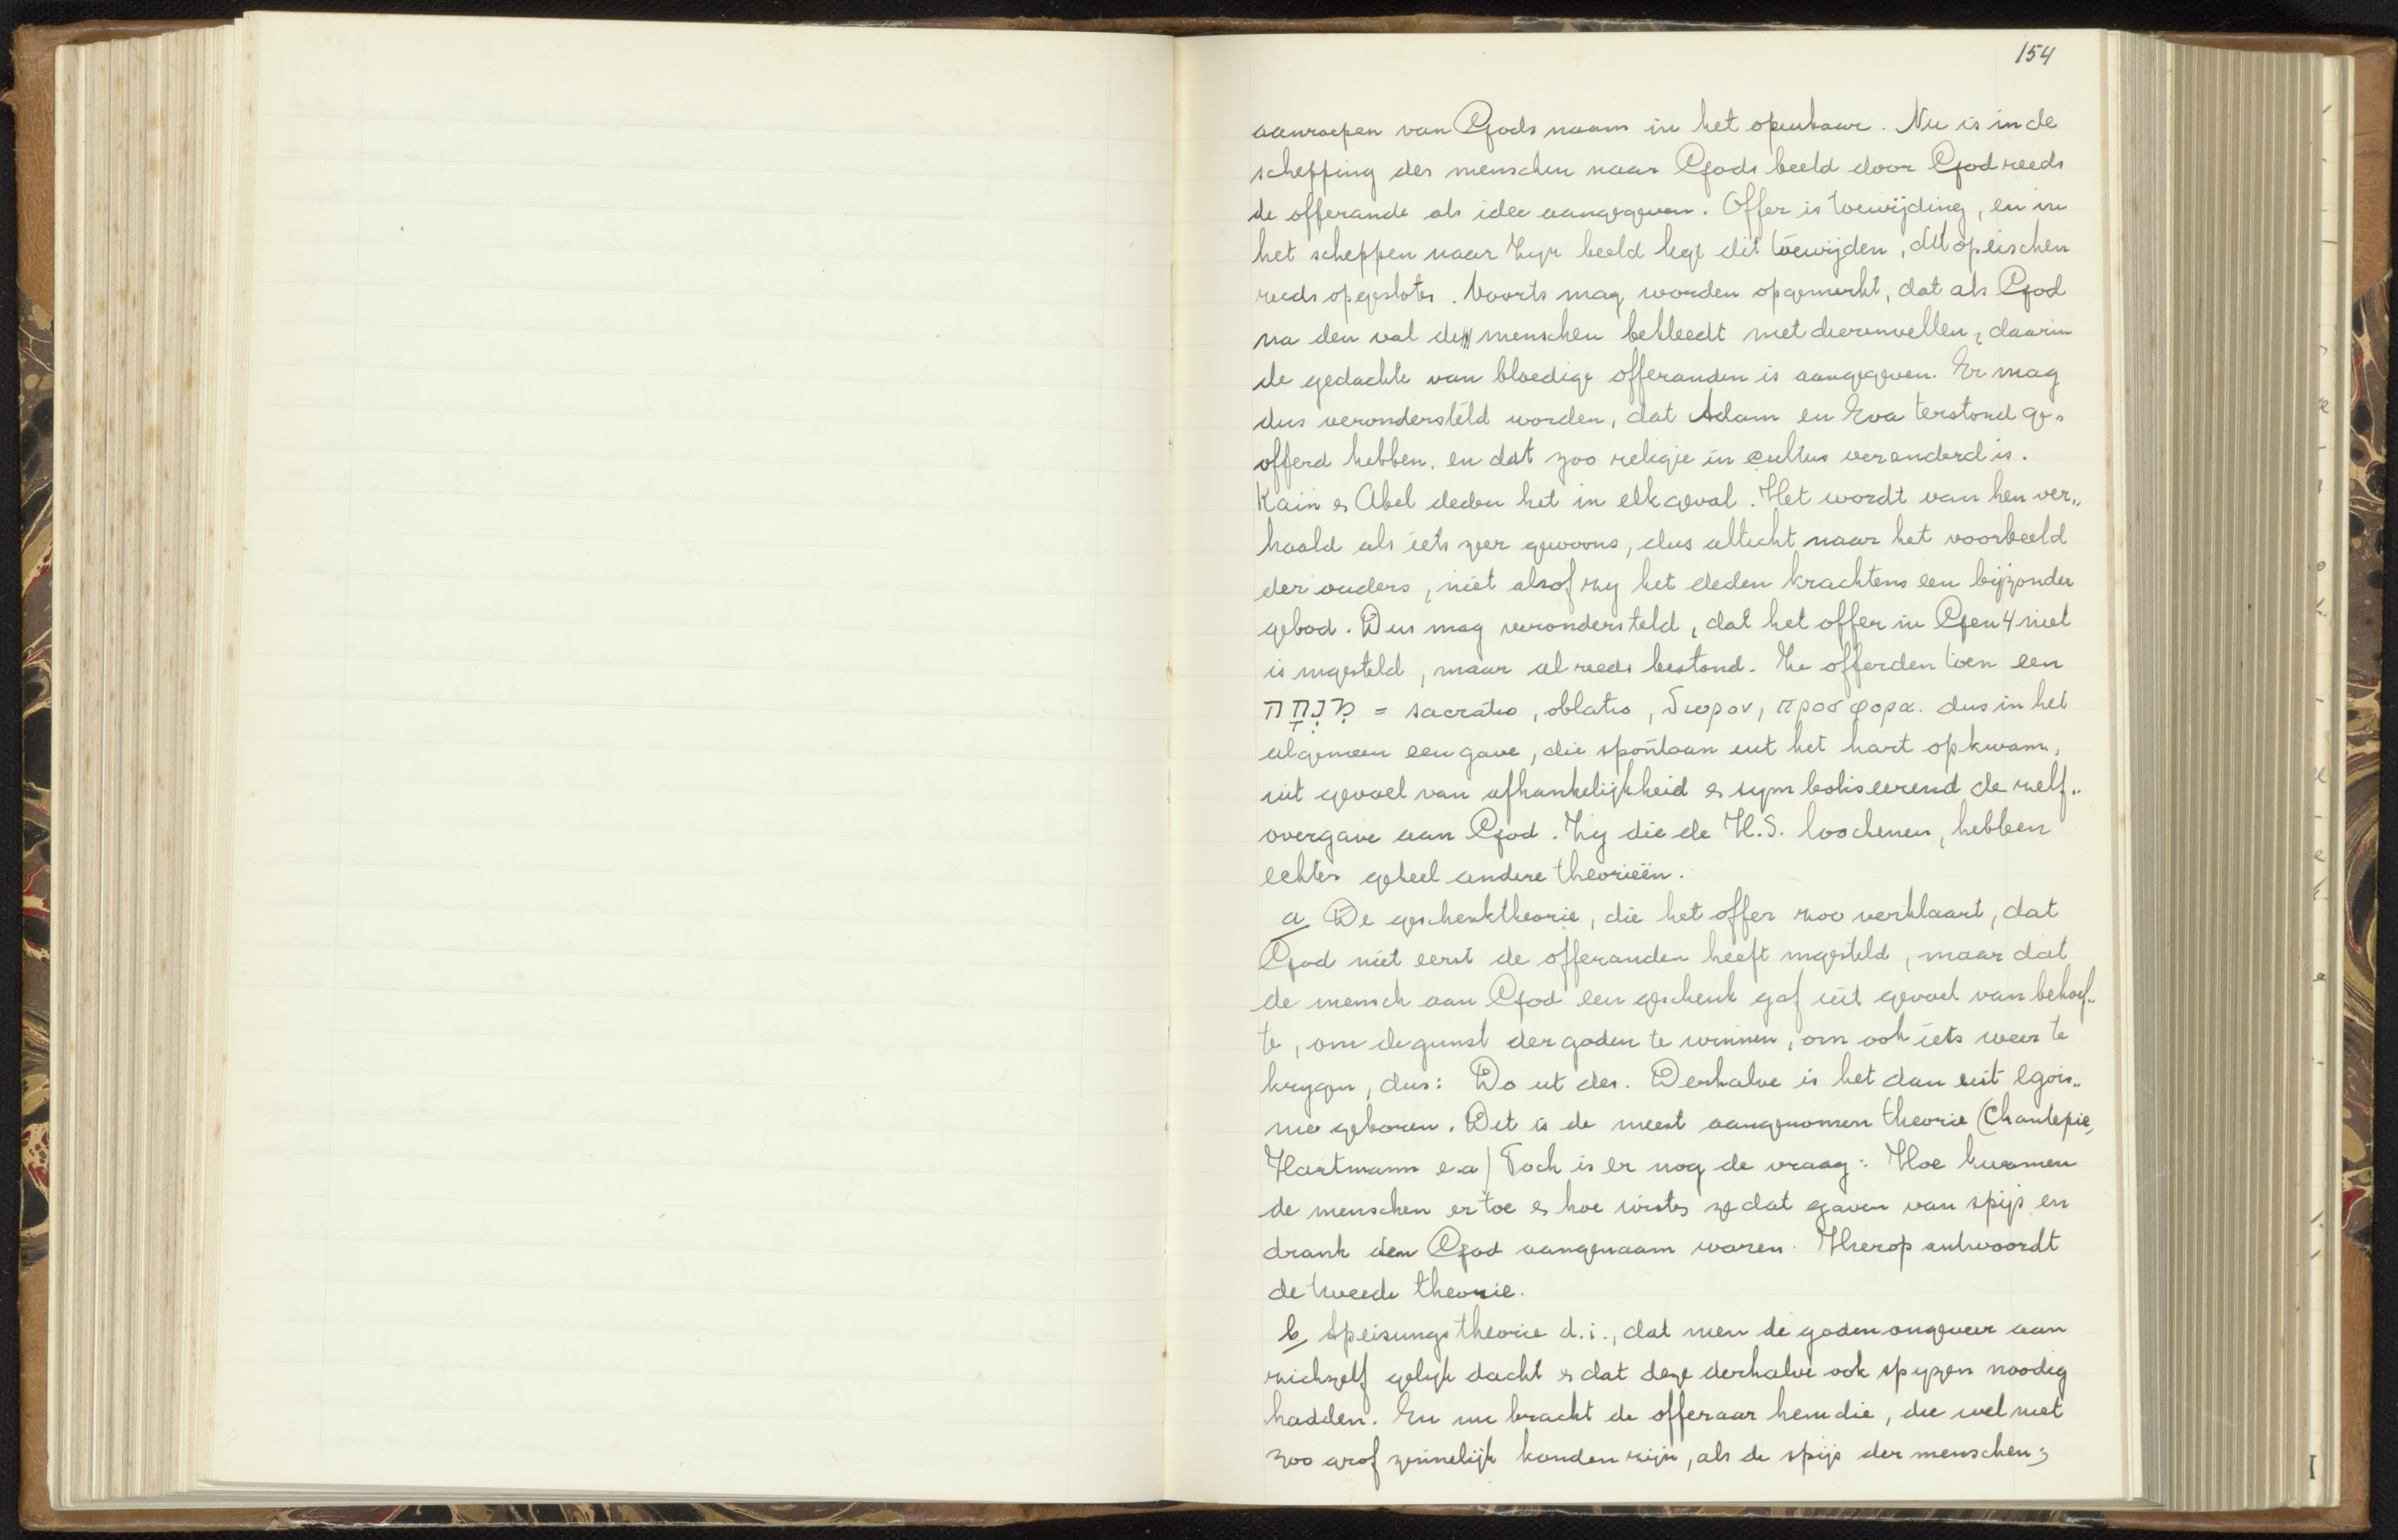 154
aanroepen van Gods naam in het openbaar. Nu is in de
schepping des menschen naar Gods beeld door God reeds
de offerande als idee aangegeven. Offer is toewijding, en in
het scheppen naar Zijn beeld legt dit toewijden, dit opeischen
reeds opgesloten. Voorts mag worden opgemerkt, dat als God
na den val den menschen bekleedt met dierenvellen, daarin
de gedachte van bloedige offeranden is aangegeven. Er mag
dus verondersteld worden, dat Adam en Eva terstond ge-
offerd hebben, en dat zoo religie in cultus veranderd is.
Kaïn & Abel deden het in elk geval. Het wordt van hen ver-
haald als iets zeer gewoons, dus allicht naar het voorbeeld
der ouders, niet alsof zij het deden krachtens een bijzonder
gebod. Dus mag verondersteld, dat het offer in Gen 4 niet
is ingesteld, maar al reeds bestond. Ze offerden toen een
מִנְחָה = sacratio, oblatio, δωρον, προσφορα. dus in het
algemeen een gave, die spontaan uit het hart opkwam,
uit gevoel van afhankelijkheid & symboliseerend de zelf-
overgave aan God. Zij die de H.S. loochenen, hebben
echter geheel andere theorieën.
a De geschenktheorie, die het offer zoo verklaart, dat
God niet eerst de offeranden heeft ingesteld, maar dat
de mensch aan God een geschenk gaf uit gevoel van behoef-
te, om de gunst der goden te winnen, om ook iets weer te
krijgen, dus: Do ut des. Derhalve is het dan uit egois-
me geboren. Dit is de meest aangenomen theorie (Chantepie,
Hartmann e.a) Toch is er nog de vraag: Hoe kwamen
de menschen er toe & hoe wisten ze dat gaven van spijs en
drank den God aangenaam waren. Hierop antwoordt
de tweede theorie.
b Speisungstheorie d.i., dat men de goden ongeveer aan
zichzelf gelijk dacht & dat deze derhalve ook spijzen noodig
hadden. En nu bracht de offeraar hem die, die wel niet
zoo grof zinnelijk konden zijn, als de spijs der menschen;